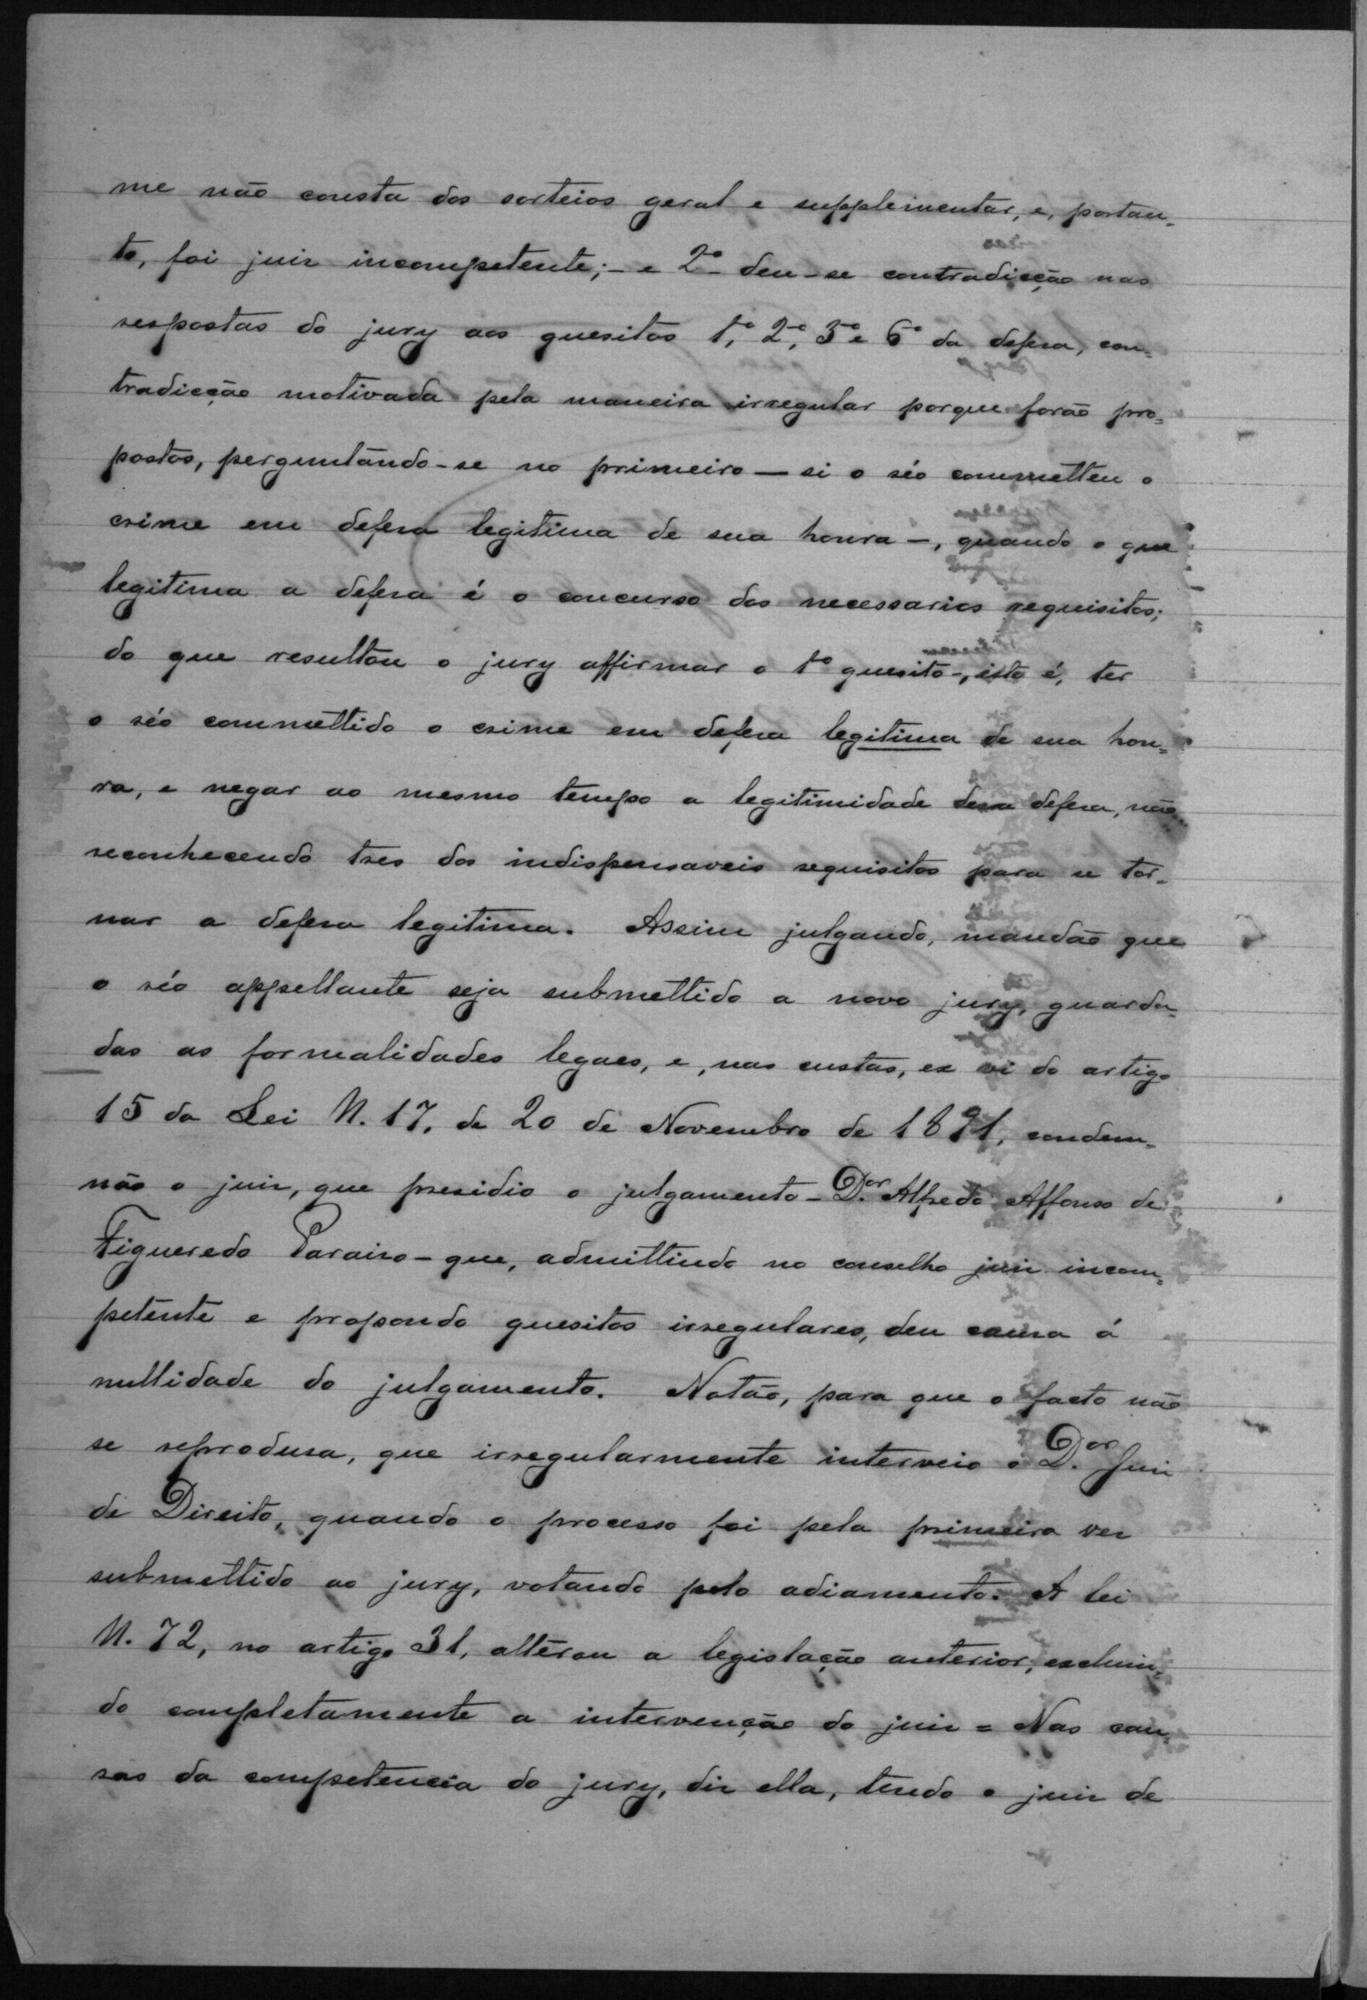 me não consta dos sorteios geral e supplementar, e, portan-
to, foi juiz incompetente; - e 2º - deu-se contradicção nas
respostas do jury aos quesitos 1º, 2º, 3º e 6º da defesa, con-
tradicção motivada pela maneira irregular porque forão pro-
postos, perguntando-se no primeiro — si o réo commetteu o
crime em defesa legitima de sua honra -, quando o que
legitima a defesa é o concurso dos necessarios requisitos;
do que resultou o jury affirmar o 1º quesito -, isto é, ter
o réo commettido o crime em defesa legitima de sua hon-
ra, e negar ao mesmo tempo a legitimidade dessa defesa, não
reconhecendo tres dos indispensaveis requisitos para se tor-
nar a defesa legitima. Assim julgando, mandão que
o réo appellante seja submettido a novo jury, guarda-
das as formalidades legaes, e, nas custas, ex vi do artigo
15 da Lei N. 17, de 20 de Novembro de 1891, condem-
não o juiz, que presidio o julgamento - D.or Alfredo Affonso de
Figueredo Paraizo - que, admittindo no conselho juiz incom-
petente e propondo quesitos irregulares, deu causa á
nullidade do julgamento. Notão, para que o facto não
se reprodusa, que irregularmente interveio o D.or Juiz
de Direito, quando o processo foi pela primeira vez
submettido ao jury, votando pelo adiamento. A lei
N. 72, no artigo 31, alterou a legislação anterior, excluin-
do completamente a intervenção do juiz = Nas cau-
sas da competencia do jury, diz ella, tendo o juiz de